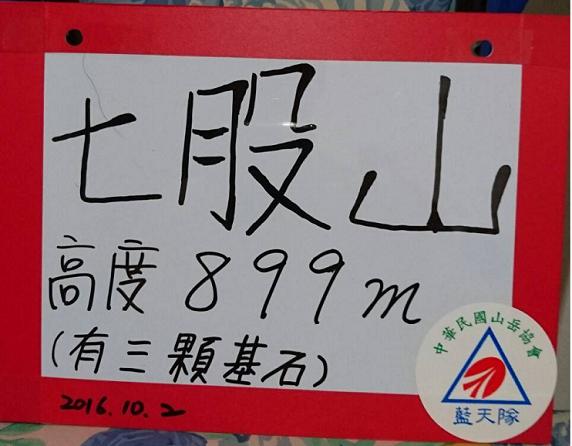 七股山
高度 899m
(有三顆基石)
2016.10.2
中華民國山岳協會
藍天隊